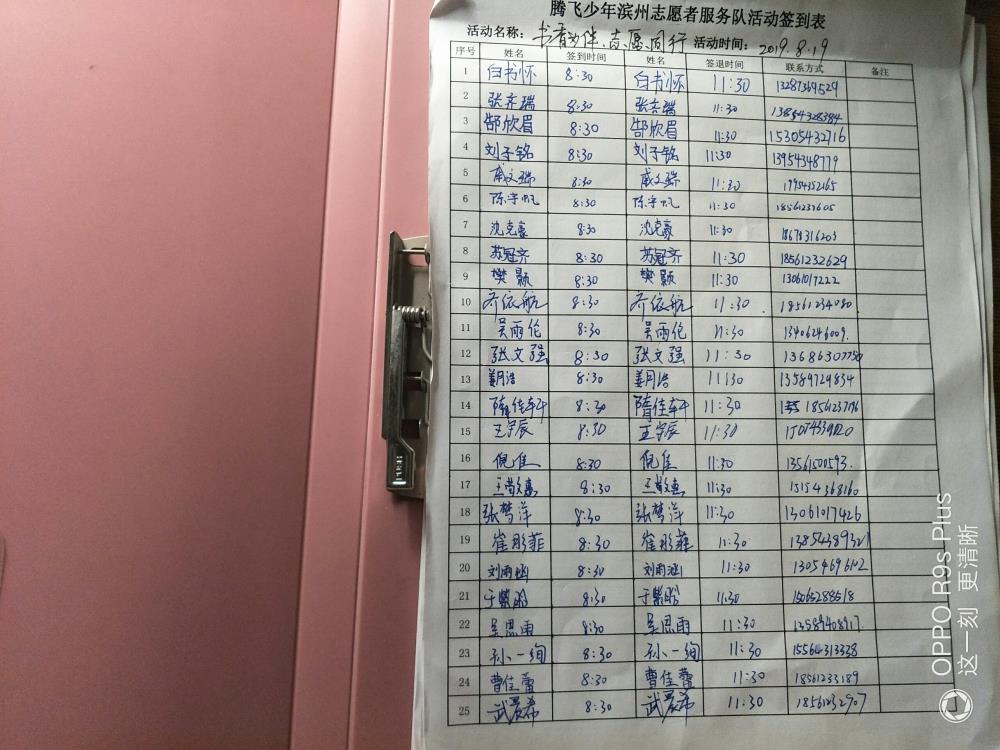 腾飞少年滨州志愿者服务队活动签到表
活动名称： 书香为伴、志愿同行 活动时间： 2019.8.19
序号 姓名 签到时间 姓名 签退时间 联系方式 备注
1 白书怀 8:30 白书怀 11:30 13287369529
2 张齐瑞 8:30 张齐瑞 11:30 13854328384
3 郜欣眉 8:30 郜欣眉 11:30 15305432716
4 刘子铭 8:30 刘子铭 11:30 13954348779
5 戚文瑞 8:30 戚文瑞 11:30
6 陈宇帆 8:30 陈宇帆 11:30 18561237605
7 沈克豪 8:30 沈克豪 11:30 18678316203
8 苏冠齐 8:30 苏冠齐 11:30 18561232629
9 樊颢 8:30 樊颢 11:30 13061017222
10 齐依航 8:30 齐依航 11:30 18561234080
11 吴雨伦 8:30 吴雨伦 11:30 13406246009.
12 张文强 8:30 张文强 11:30 13686307750
13 姜月浩 8:30 姜月浩 11:30 13589729834
14 隋佳轩 8:30 隋佳轩 11:30
15 王宇辰 8:30 王宇辰 11:30
16 倪佳 8:30 倪佳 11:30 13561500593.
17 8:30 11:30 15154368160
18 张梦洋 8:30 张梦洋 11:30 13061017426
19 崔彤菲 8:30 崔彤菲 11:30 13854389321
20 刘雨涵 8:30 刘雨涵 11:30 13054696102
21 8:30 11:30 15065288518
22 吴思雨 8:30 吴思雨 11:30 13589408917.
23 孙一绚 8:30 孙一绚 11:30 15564313338
24 曹佳蕾 8:30 曹佳蕾 11:30 18561233189
25 武晨希 8:30 武晨希 11:30 18561232907
OPPO R9s Plus
这一刻 更清晰